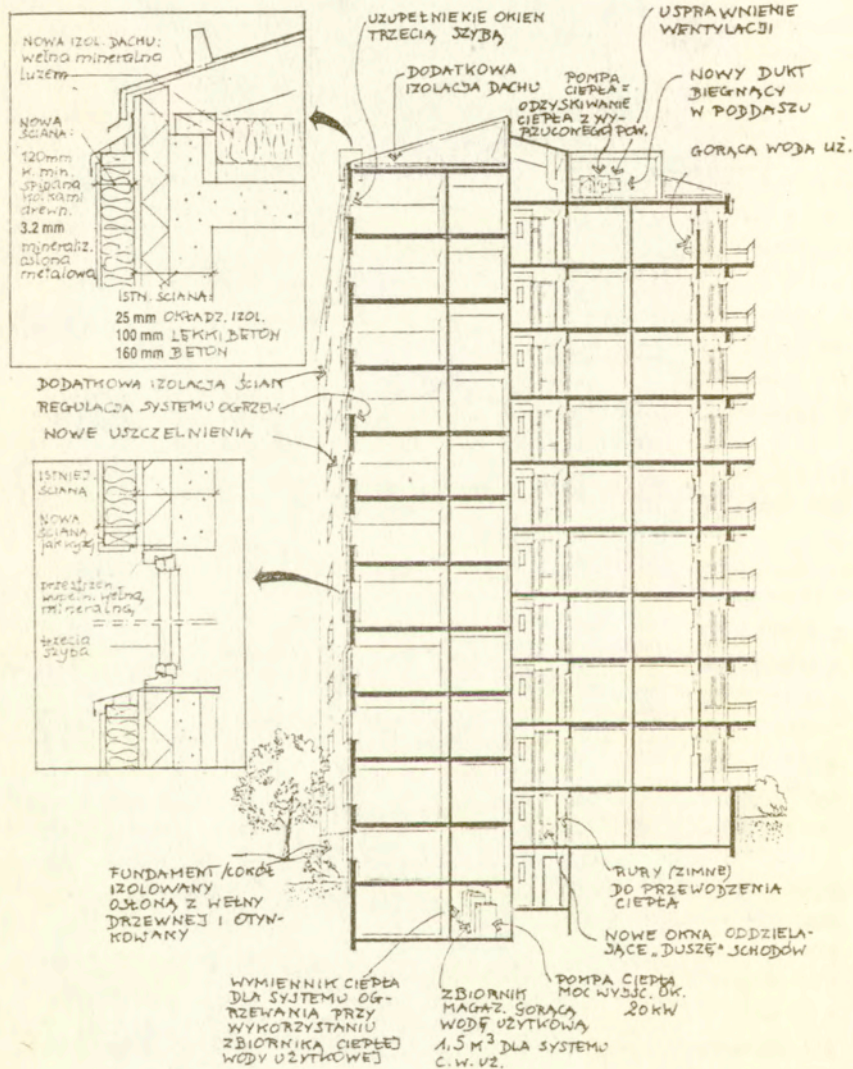 NOWA IZOL. DACHU:
wełna mineralna
luzem
NOWA
ŚCIANA:
120mm
w. min.
spinana
kołkami
drewn.
3.2 mm
mineraliz.
osłona
metalowa
ISTN. ŚCIANA:
25 mm OKŁADZ. IZOL.
100 mm LEKKI BETON
160 mm BETON
UZUPEŁNIEKIE OKIEN
TRZECIĄ SZYBĄ
DODATKOWA
IZOLACJA DACHU
POMPA
CIEPŁA =
ODZYSKIWANIE
CIEPŁA Z WY-
RZUCONEGO POW.
USPRAWNIENIE
WENTYLACJI
NOWY DUKT
BIEGNĄCY
W PODDASZU
GORĄCA WODA UŻ.
DODATKOWA IZOLACJA ŚCIAN
REGULACJA SYSTEMU OGRZEW.
NOWE USZCZELNIENIA
ISTNIEJ.
ŚCIANA
NOWA
ŚCIANA
jak wyżej
przestrzeń
wypełn. wełną
mineralną
trzecia
szyba
FUNDAMENT/COKÓŁ
IZOLOWANY
OSŁONĄ Z WEŁNY
DRZEWNEJ I OTYN-
KOWANY
RURY (ZIMNE)
DO PRZEWODZENIA
CIEPŁA
NOWE OKNA ODDZIELA-
JĄCE „DUSZĘ” SCHODÓW
WYMIENNIK CIEPŁA
DLA SYSTEMU OG-
RZEWANIA PRZY
WYKORZYSTANIU
ZBIORNIKA CIEPŁEJ
WODY UŻYTKOWEJ
ZBIORNIK
MAGAZ. GORĄCĄ
WODĘ UŻYTKOWĄ
1,5 M³ DLA SYSTEMU
C.W. UŻ.
POMPA CIEPŁA
MOC WYJŚC. OK.
20 kW